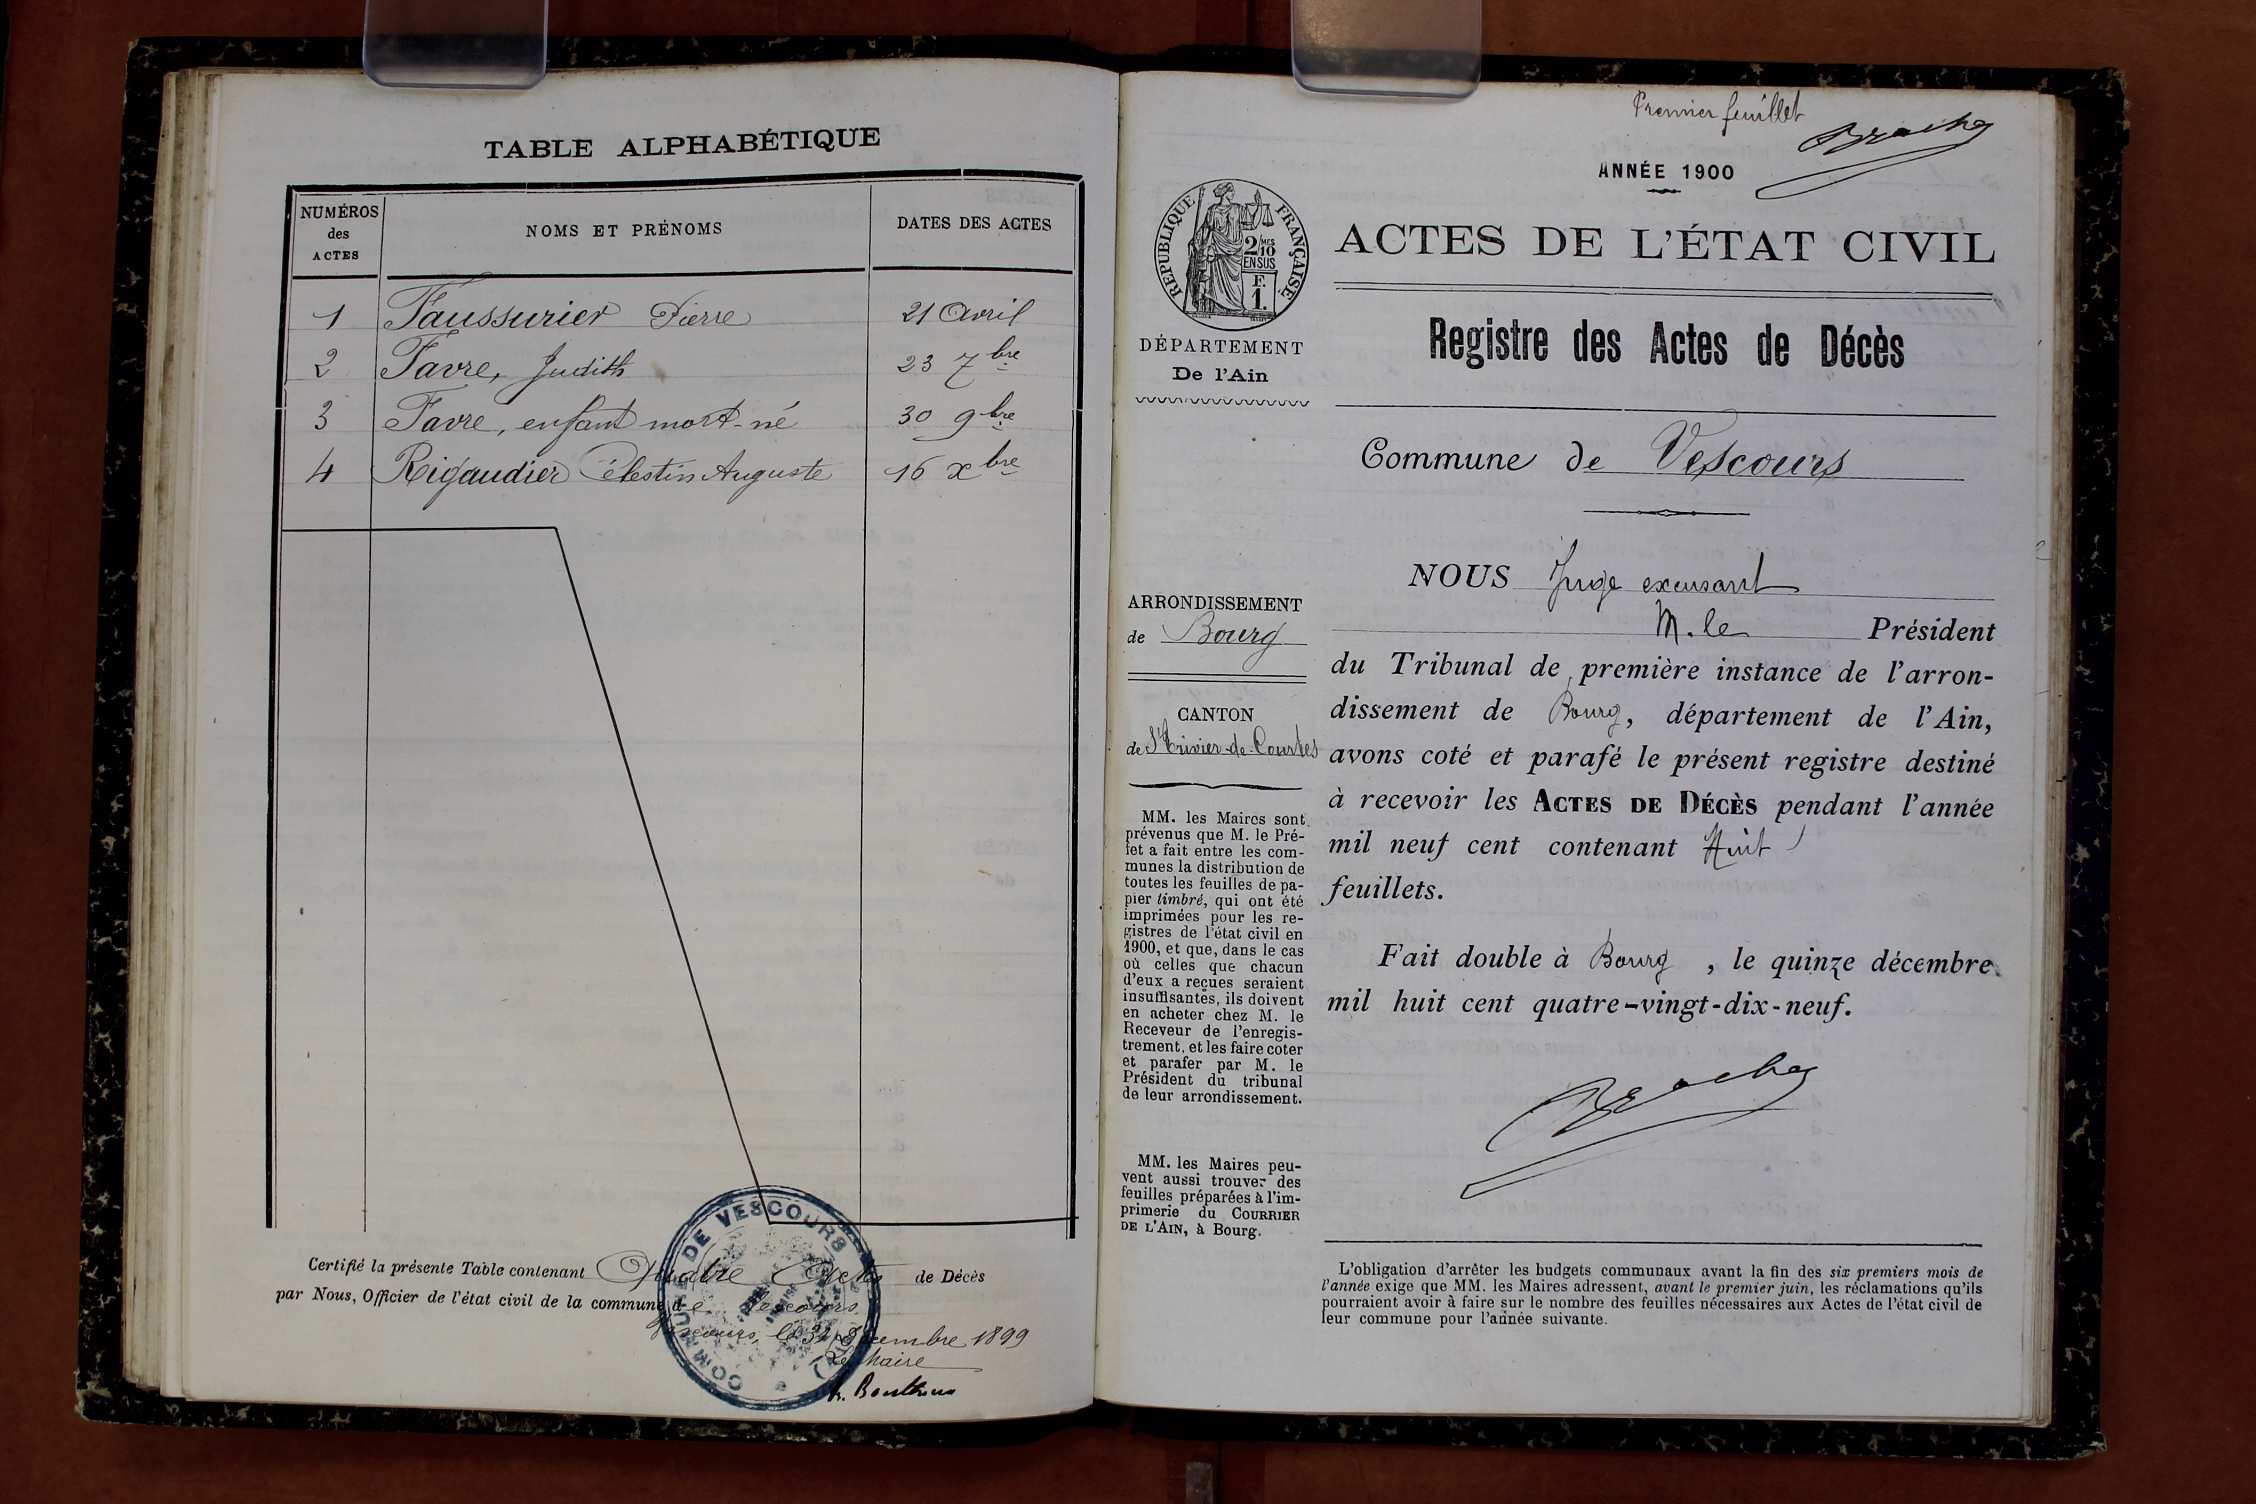 TABLE ALPHABÉTIQUE
NUMÉROS
des
ACTES
NOMS ET PRÉNOMS
DATES DES ACTES
1 Faussurier Pierre 21 Avril
2 Favre, Judith 23 7bre
3 Favre, enfant mort-né 30 9bre
4 Rigaudier Célestin Auguste 16 xbre
Certifié la présente Table contenant Quatre Actes de Décès
par Nous, Officier de l'état civil de la commune de Vescours
Vescours, le 31 Décembre 1899
Le Maire
COMMUNE DE VESCOURS
Premier feuillet
ANNÉE 1900
RÉPUBLIQUE FRANÇAISE
2/10 MES
EN SUS
F.
1.
ACTES DE L'ÉTAT CIVIL
Registre des Actes de Décès
DÉPARTEMENT
De l'Ain
Commune de Vescours
NOUS Juge excusant
M. le Président
du Tribunal de première instance de l'arron-
dissement de Bourg, département de l'Ain,
avons coté et parafé le présent registre destiné
à recevoir les ACTES DE DÉCÈS pendant l'année
mil neuf cent contenant Huit
feuillets.
Fait double à Bourg, le quinze décembre
mil huit cent quatre-vingt-dix-neuf.
ARRONDISSEMENT
de Bourg
CANTON
de St Trivier-de-Courtes
MM. les Maires sont
prévenus que M. le Pré-
fet a fait entre les com-
munes la distribution de
toutes les feuilles de pa-
pier timbré, qui ont été
imprimées pour les re-
gistres de l'état civil en
1900, et que, dans le cas
où celles que chacun
d'eux a reçues seraient
insuffisantes, ils doivent
en acheter chez M. le
Receveur de l'enregis-
trement, et les faire coter
et parafer par M. le
Président du tribunal
de leur arrondissement.
MM. les Maires peu-
vent aussi trouver des
feuilles préparées à l'im-
primerie du COURRIER
DE L'AIN, à Bourg.
L'obligation d'arrêter les budgets communaux avant la fin des six premiers mois de
l'année exige que MM. les Maires adressent, avant le premier juin, les réclamations qu'ils
pourraient avoir à faire sur le nombre des feuilles nécessaires aux Actes de l'état civil de
leur commune pour l'année suivante.